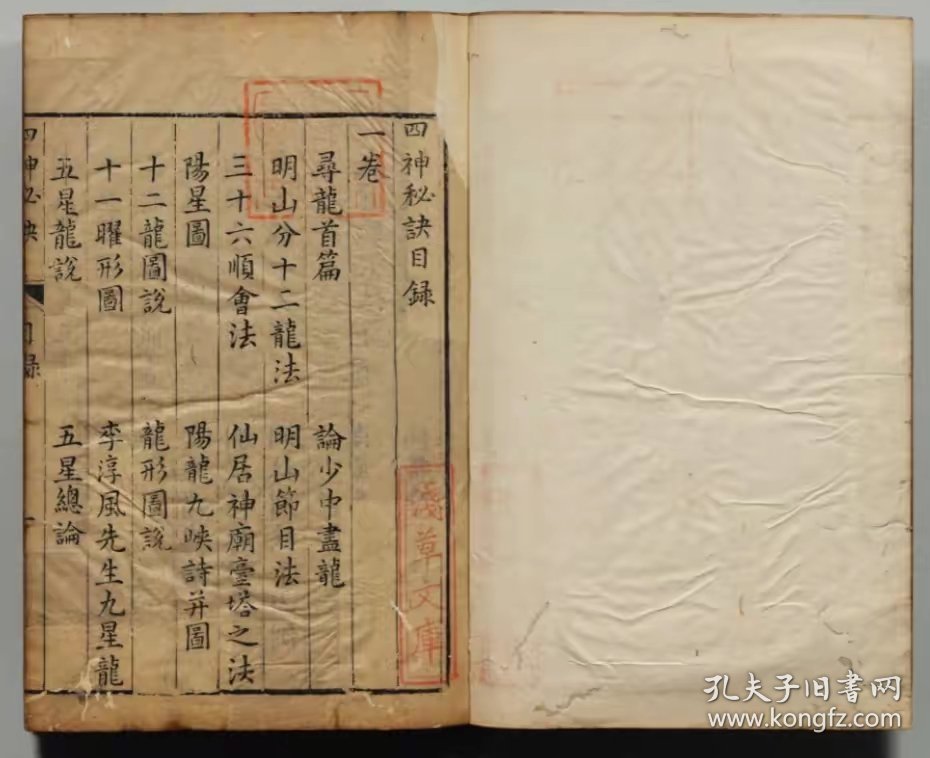 四神秘訣目録
一卷
尋龍首篇 論少中盡龍
明山分十二龍法 明山節目法
三十六順會法 仙居神廟臺塔之法
陽星圖 陽龍九峽詩并圖
十二龍圖說 龍形圖說
十一曜形圖 李淳風先生九星龍
五星龍說 五星總論
四神必夬 目録
淺草文庫
孔夫子旧书网
www.kongfz.com